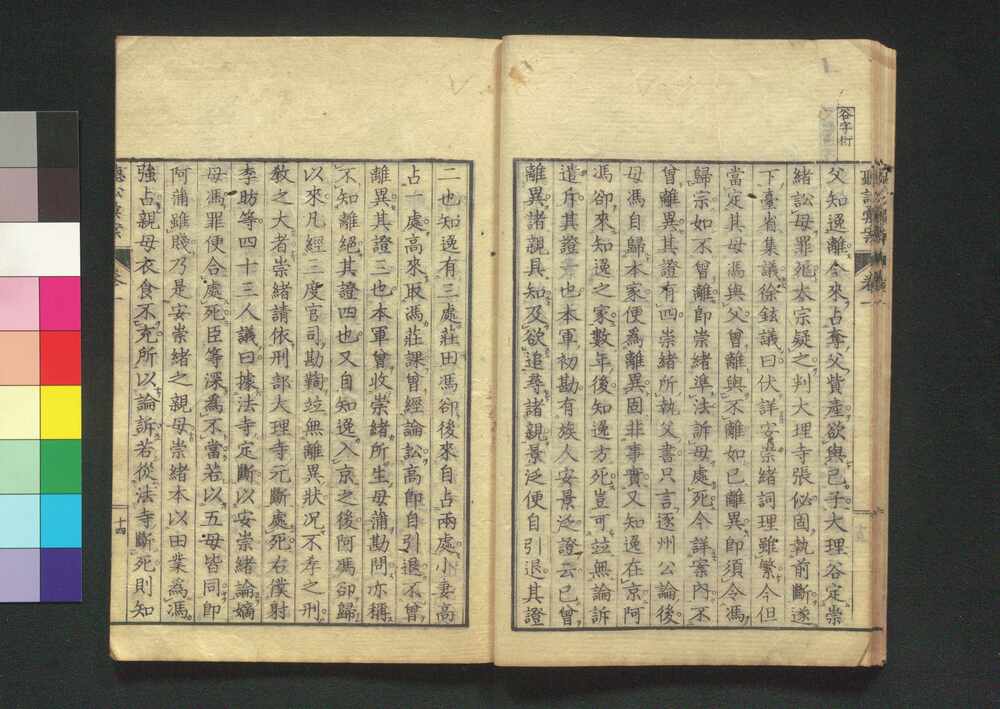 谷字衍
父知逸離今來占奪父貲產欲與己子大理谷定崇
緒訟母罪死太宗疑之判大理寺張佖固執前斷遂
下臺省集議徐鉉議曰伏詳安崇緒詞理雖繁今但
當定其母馮與父曾離與不離如已離異即須令馮
歸宗如不曾離即崇緒準法訴母處死今詳案內不
曾離異其證有四崇緒所執父書只言逐州公論後
母馮自歸本家便為離異固非事實又知逸在京阿
馮卻來知逸之家數年後知逸方死豈可並無論訴
遣斥其證一也本軍初勘有族人安景泛證云已曾
離異諸親具知及欲追尋諸親景泛便自引退其證
二也知逸有三處莊田馮卻後來自占兩處小妻高
占一處高來取馮莊課曾經論訟高即自引退不曾
離異其證三也本軍曾收崇緒所生母蒲勘問亦稱
不知離絕其證四也又自知逸入京之後阿馮卻歸
以來凡經三度官司勘鞫並無離異狀況不孝之刑
教之大者崇緒請依刑部大理寺元斷處死右僕射
李昉等四十三人議曰據法寺定斷以安崇緒論嫡
母馮罪便合處死臣等深為不當若以五母皆同即
阿蒲雖賤乃是安崇緒之親母崇緒本以田業為馮
強占親母衣食不充所以論訴若從法寺斷死則知
卷一
十四